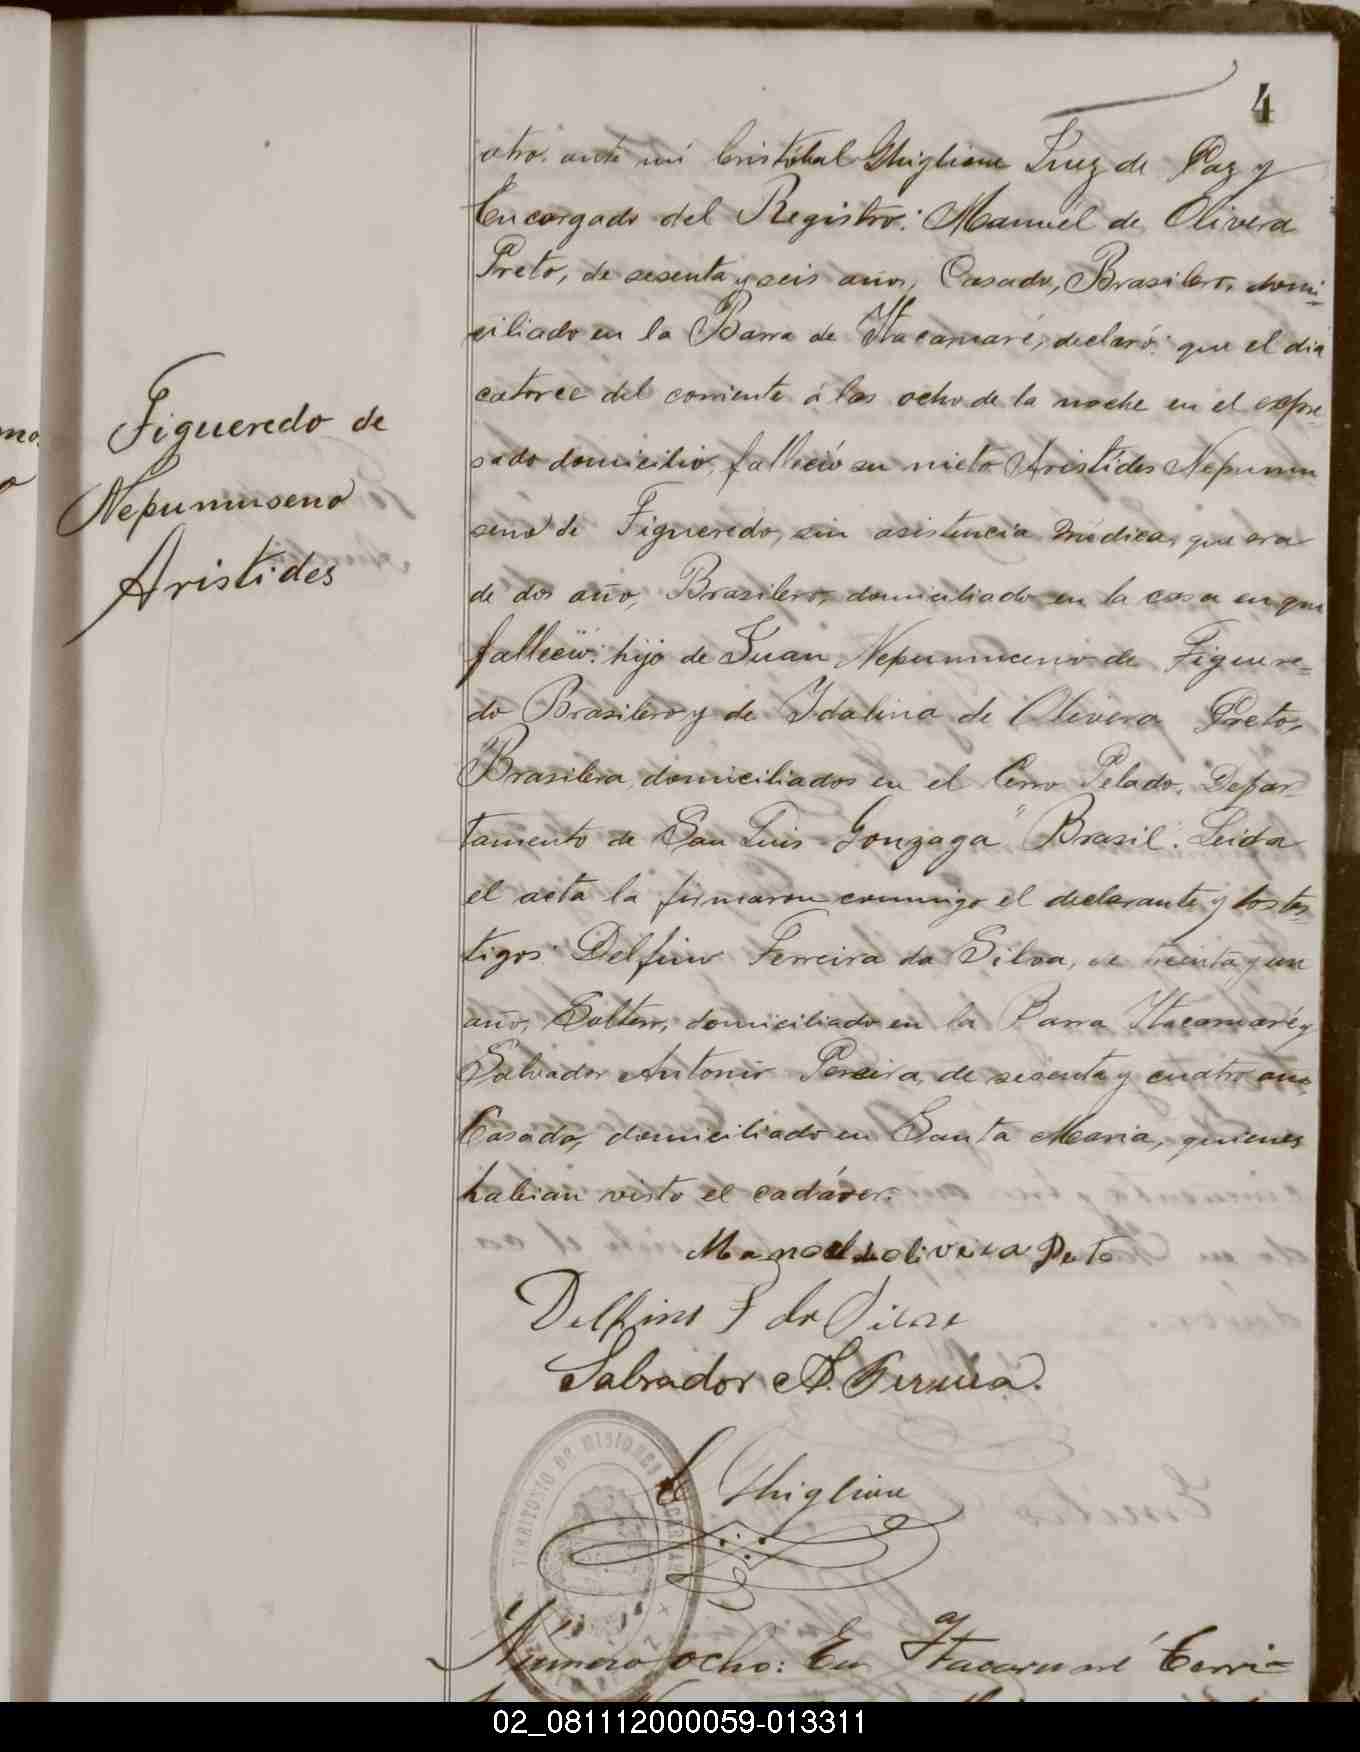 4
otro. ante mí Cristóbal Ghiglione Juez de Paz y
Encargado del Registro: Manuel de Olivera
Preto, de sesenta y seis años, Casado, Brasilero, domi-
ciliado en la Barra de Itacaruaré, declaró: que el dia
catorce del corriente á las ocho de la noche en el expre-
sado domicilio, falleció su nieto Aristides Nepumu
seno de Figueredo, sin asistencia médica, que era
de dos año, Brasilero, domiciliado en la casa en que
falleció: hijo de Juan Nepumuceno de Figuere-
do Brasilero y de Idalina de Olivera Preto,
Brasilera, domiciliados en el Cerro Pelado, Depar-
tamento de San Luis Gonzaga" Brasil. Leida
el acta la firmaron conmigo el declarante y los tes-
tigos: Delfino Ferreira da Silva, de treinta y un
año, Soltero, domiciliado en la Barra Itacaruaré y
Salvador Antonio Pereira, de sesenta y cuatro años
Casado, domiciliado en Santa Maria, quienes
habian visto el cadáver.
Figueredo de
Nepumuseno
Aristides
Manoel de oliveira Preto
Delfino F da Silva
Salvador A. Pereira.
C Ghiglione
TERRITORIO DE MISIONES
Número ocho: En Itacaruaré Terri-
02_081112000059-013311